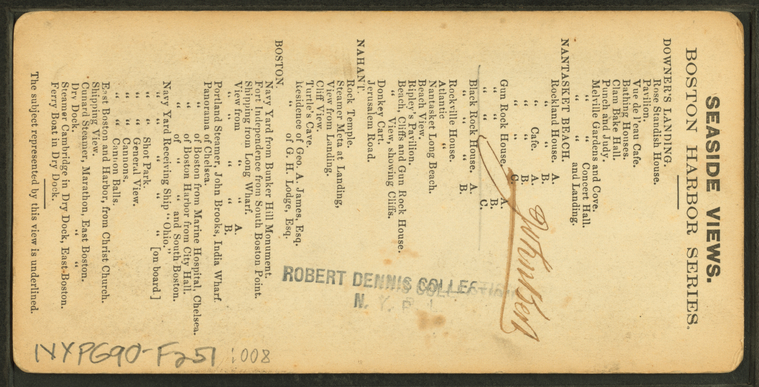 SEASIDE VIEWS.
BOSTON HARBOR SERIES.
DOWNER'S LANDING.
Rose Standish House.
Pavilion.
Vue de l'eau Cafe.
Bathing Houses.
Clam Bake Hall.
Punch and Judy.
Melville Gardens and Cove.
" " Concert Hall.
" " and Landing.
NANTASKET BEACH.
Rockland House. A.
" " B.
" Cafe. A.
" " B.
" " C.
Gun Rock House. A.
" " " B.
" " " C.
Black Rock House. A.
" " " B.
Rockville House.
Atlantic "
Nantasket Long Beach.
Beach View.
Ripley's Pavilion.
Beach, Cliffs and Gun Rock House.
" View, showing Cliffs.
Donkey Cart.
Jerusalem Road.
NAHANT.
Rock Temple.
Steamer Meta at Landing.
View from Landing.
Cliff View.
Turtle's Cave.
Residence of Geo. A. James, Esq.
" of G. H. Lodge, Esq.
BOSTON.
Navy Yard from Bunker Hill Monument.
Fort Independence from South Boston Point.
Shipping from Long Wharf.
View from " " A.
" " " " B.
Portland Steamer, John Brooks, India Wharf.
Panorama of Chelsea.
" of Boston from Marine Hospital, Chelsea.
" of Boston Harbor from City Hall.
" of " " and South Boston.
Navy Yard Receiving Ship "Ohio."
" " " " " [on board]
" " Shot Park.
" " General View.
" " Cannons.
" " Cannon Balls.
East Boston and Harbor, from Christ Church.
Shipping View.
Cunard Steamer, Marathon, East Boston.
Dry Dock.
Steamer Cambridge in Dry Dock, East-Boston.
Ferry Boat in Dry Dock.
The subject represented by this view is underlined.
ROBERT DENNIS COLLECTION
NYPG90-F251 1008